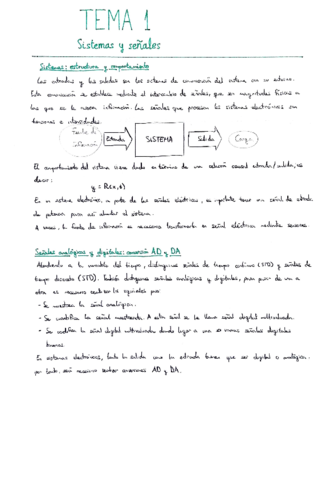 TEMA 1
Sistemas y señales
Sistemas: estructura y comportamiento
Las entradas y las salidas son los sistemas de comunicación del sistema con su entorno.
Esta comunicación se establece mediante el intercambio de señales, que son magnitudes físicas a
las que se le asocia información. Las señales que procesan los sistemas electrónicos son
tensiones e intensidades.
Fuente de información
Entrada
SISTEMA
Salida
Carga
El comportamiento del sistema viene dado en términos de una relación causal entrada/salida, es
decir:
y = R(x,t)
En un sistema electrónico, a parte de las señales eléctricas, es importante tener una señal de entrada
de potencia para así alimentar al sistema.
A veces, la fuente de información es necesario transformarla en señal eléctrica mediante sensores
Señales analógicas y digitales: conversión AD y DA
Atendiendo a la variable del tiempo, distinguimos señales de tiempo continuo (STC) y señales de
tiempo discreto (STD). También distinguimos señales analógicas y digitales, para pasar de una a
otra es necesario realizar lo siguiente:
- Se muestrea la señal analógica.
- Se cuantifica la señal muestreada. A esta señal se le llama señal digital multivaluada.
- Se codifica la señal digital multivaluada dando lugar a una o varias señales digitales
binarias.
En sistemas electrónicos, tanto la salida como la entrada tienen que ser digital o analógica,
por tanto, será necesario realizar conversiones AD y DA.